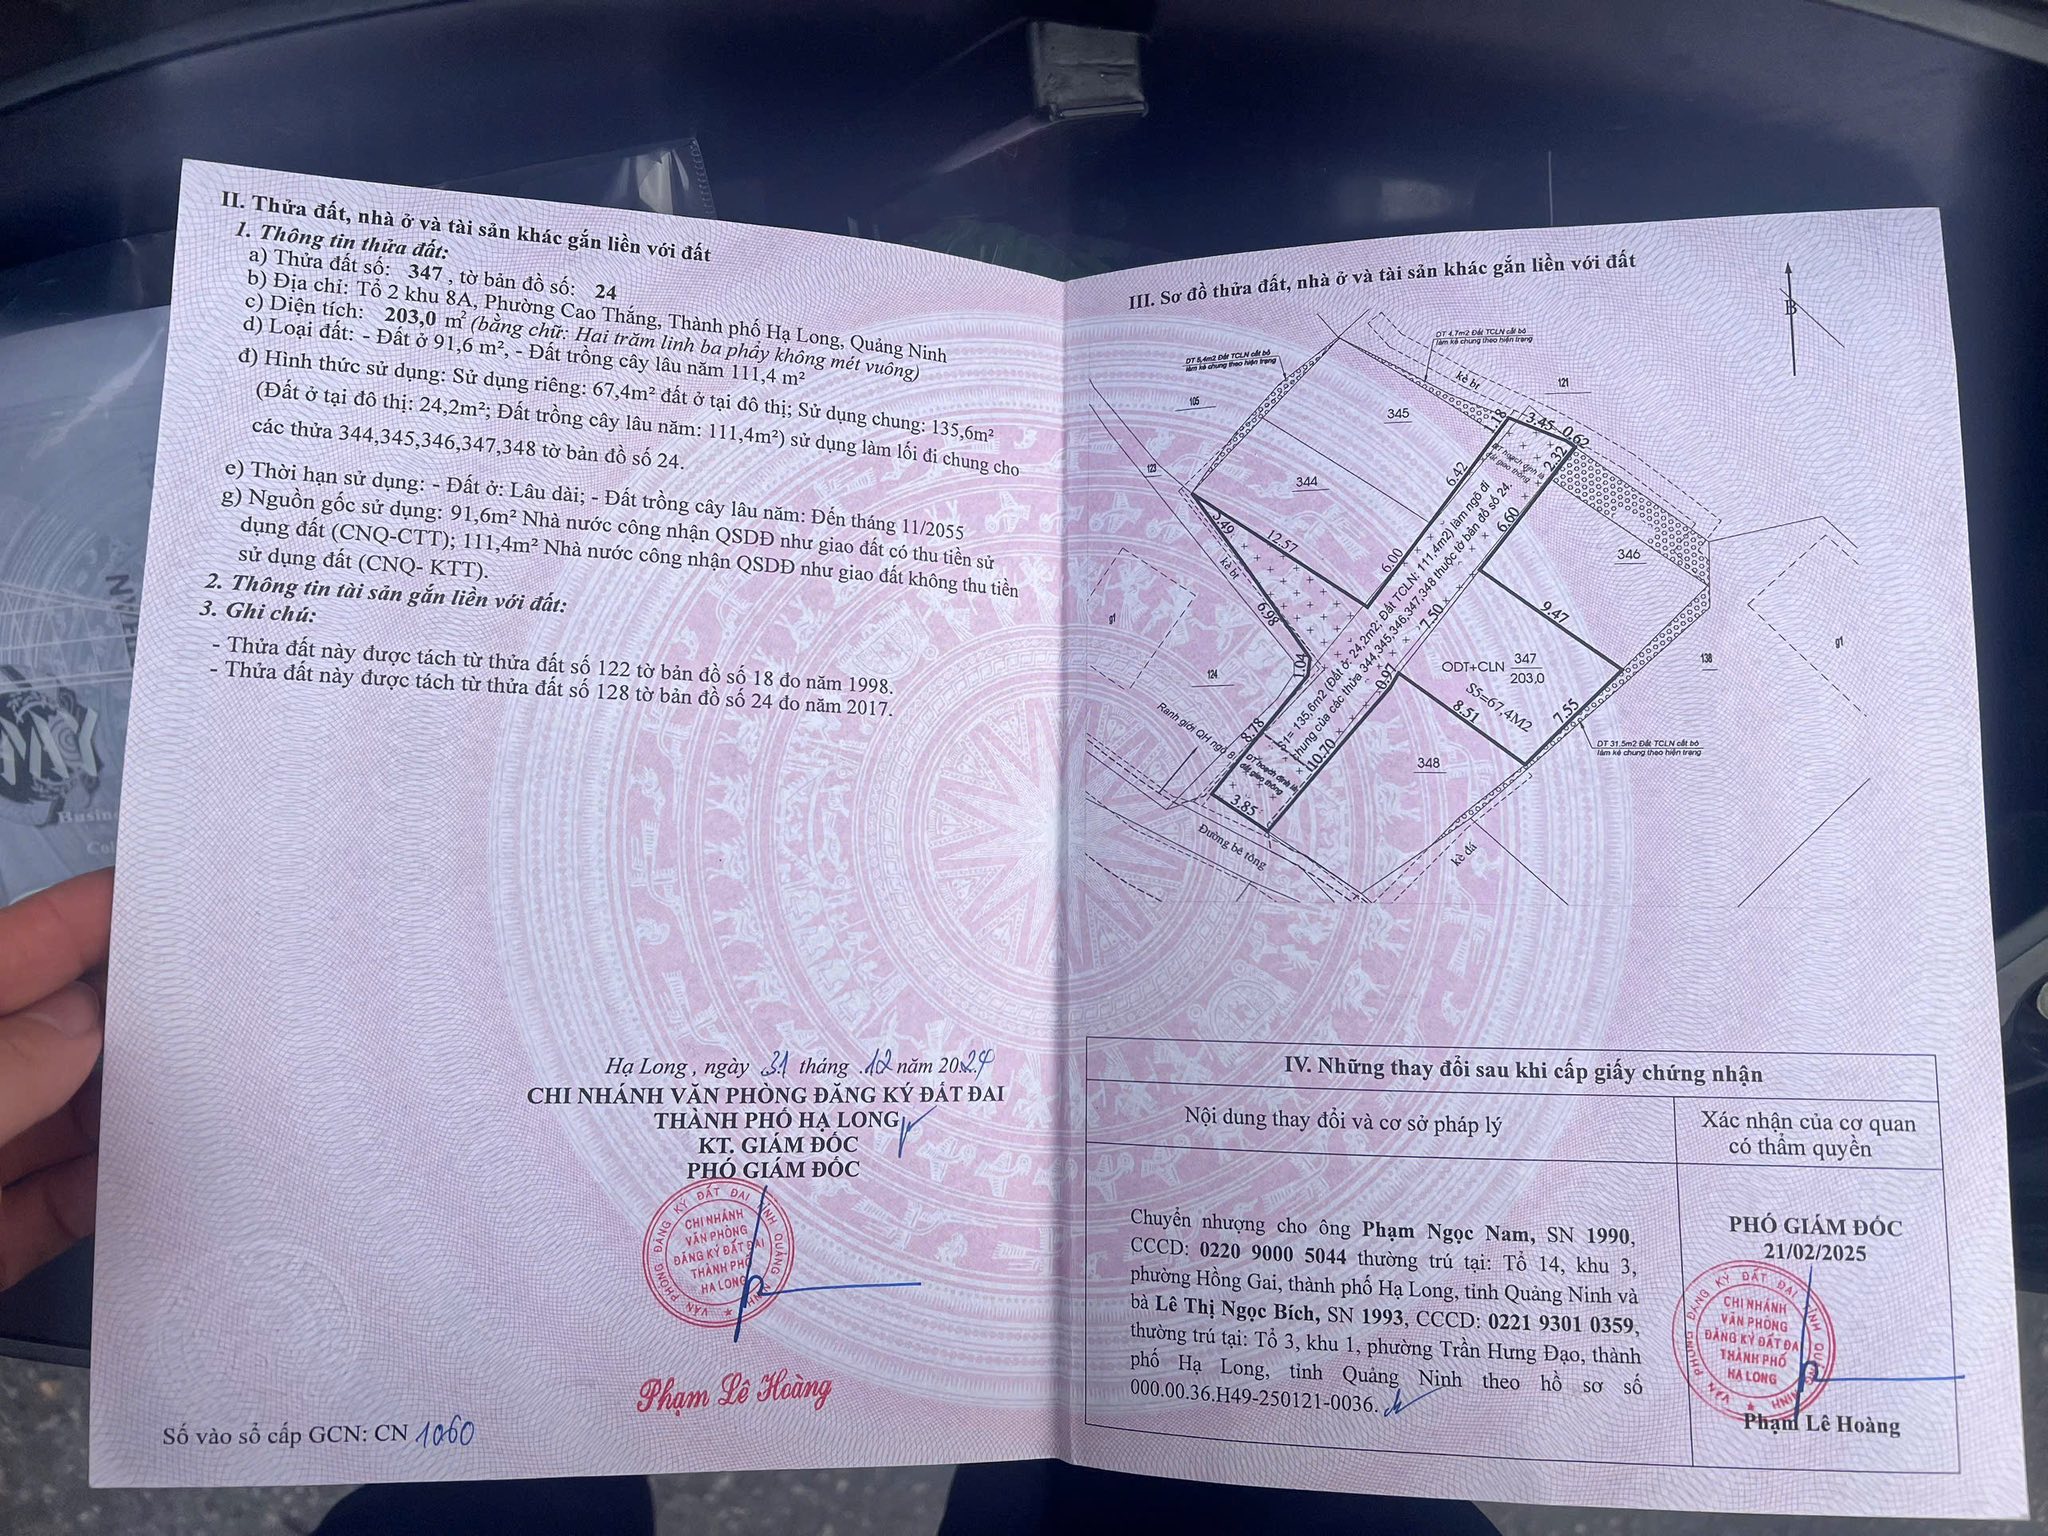 II. Thửa đất, nhà ở và tài sản khác gắn liền với đất
1. Thông tin thửa đất:
a) Thửa đất số: 347, tờ bản đồ số: 24
b) Địa chỉ: Tổ 2 khu 8A, Phường Cao Thắng, Thành phố Hạ Long, Quảng Ninh
c) Diện tích: 203,0 m² (bằng chữ: Hai trăm linh ba phẩy không mét vuông)
d) Loại đất: - Đất ở 91,6 m², - Đất trồng cây lâu năm 111,4 m²
đ) Hình thức sử dụng: Sử dụng riêng: 67,4m² đất ở tại đô thị; Sử dụng chung: 135,6m²
(Đất ở tại đô thị: 24,2m²; Đất trồng cây lâu năm: 111,4m²) sử dụng làm lối đi chung cho
các thửa 344,345,346,347,348 tờ bản đồ số 24.
e) Thời hạn sử dụng: - Đất ở: Lâu dài; - Đất trồng cây lâu năm: Đến tháng 11/2055
g) Nguồn gốc sử dụng: 91,6m² Nhà nước công nhận QSDĐ như giao đất có thu tiền sử
dụng đất (CNQ-CTT); 111,4m² Nhà nước công nhận QSDĐ như giao đất không thu tiền
sử dụng đất (CNQ- KTT).
2. Thông tin tài sản gắn liền với đất:
3. Ghi chú:
- Thửa đất này được tách từ thửa đất số 122 tờ bản đồ số 18 đo năm 1998.
- Thửa đất này được tách từ thửa đất số 128 tờ bản đồ số 24 đo năm 2017.
Hạ Long, ngày 31 tháng 12 năm 2024
CHI NHÁNH VĂN PHÒNG ĐĂNG KÝ ĐẤT ĐAI
THÀNH PHỐ HẠ LONG
KT. GIÁM ĐỐC
PHÓ GIÁM ĐỐC
VĂN PHÒNG ĐĂNG KÝ ĐẤT ĐAI TỈNH QUẢNG NINH
CHI NHÁNH
VĂN PHÒNG
ĐĂNG KÝ ĐẤT ĐAI
THÀNH PHỐ
HẠ LONG
Phạm Lê Hoàng
Số vào sổ cấp GCN: CN 1060
III. Sơ đồ thửa đất, nhà ở và tài sản khác gắn liền với đất
B
DT 4,7m2 Đất TCLN cắt bỏ
làm kè chung theo hiện trạng
DT 5,4m2 Đất TCLN cắt bỏ
làm kè chung theo hiện trạng
kè bt
121
105
345
1.18
3.45
0.62
2.32
123
344
6.42
DT hoạch định là
đất giao thông
346
3.49
12.57
6.00
6.60
kè bt
6.98
9.47
g1
g1
7.50
1.04
124
0.97
138
ODT+CLN
347
203,0
S5=67,4M2
8.51
7.55
8.78
S1= 135,6m2 (Đất ở: 24,2m2; Đất TCLN: 111,4m2) làm ngõ đi
chung của các thửa 344,345,346,347,348 thuộc tờ bản đồ số 24.
10.70
Ranh giới QH ngõ 8
DT hoạch định là
đất giao thông
3.85
348
DT 31,5m2 Đất TCLN cắt bỏ
làm kè chung theo hiện trạng
Đường bê tông
kè đá
IV. Những thay đổi sau khi cấp giấy chứng nhận
Nội dung thay đổi và cơ sở pháp lý
Xác nhận của cơ quan
có thẩm quyền
Chuyển nhượng cho ông Phạm Ngọc Nam, SN 1990,
CCCD: 0220 9000 5044 thường trú tại: Tổ 14, khu 3,
phường Hồng Gai, thành phố Hạ Long, tỉnh Quảng Ninh và
bà Lê Thị Ngọc Bích, SN 1993, CCCD: 0221 9301 0359,
thường trú tại: Tổ 3, khu 1, phường Trần Hưng Đạo, thành
phố Hạ Long, tỉnh Quảng Ninh theo hồ sơ số
000.00.36.H49-250121-0036.
PHÓ GIÁM ĐỐC
21/02/2025
VĂN PHÒNG ĐĂNG KÝ ĐẤT ĐAI TỈNH QUẢNG NINH
CHI NHÁNH
VĂN PHÒNG
ĐĂNG KÝ ĐẤT ĐAI
THÀNH PHỐ
HẠ LONG
Phạm Lê Hoàng